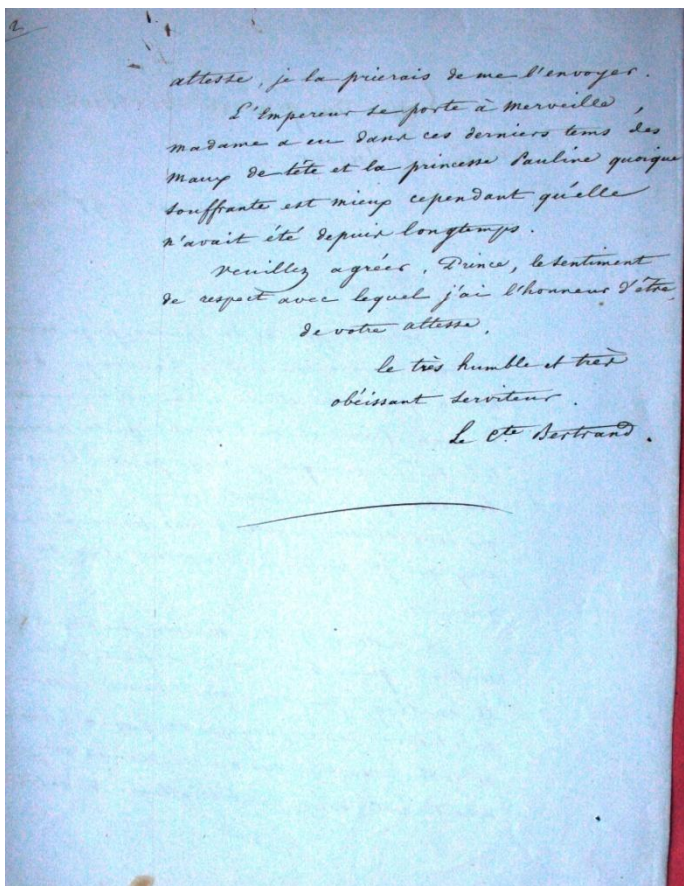 2
altesse, je la prierais de me l'envoyer.
L'Empereur se porte à merveille,
madame a eu dans ces derniers tems des
maux de tête et la princesse Pauline quoique
souffrante est mieux cependant qu'elle
n'avait été depuis longtemps.
veuillez agréer, Prince, le sentiment
de respect avec lequel j'ai l'honneur d'être,
de votre altesse,
le très humble et très
obéissant serviteur.
Le Cte Bertrand.